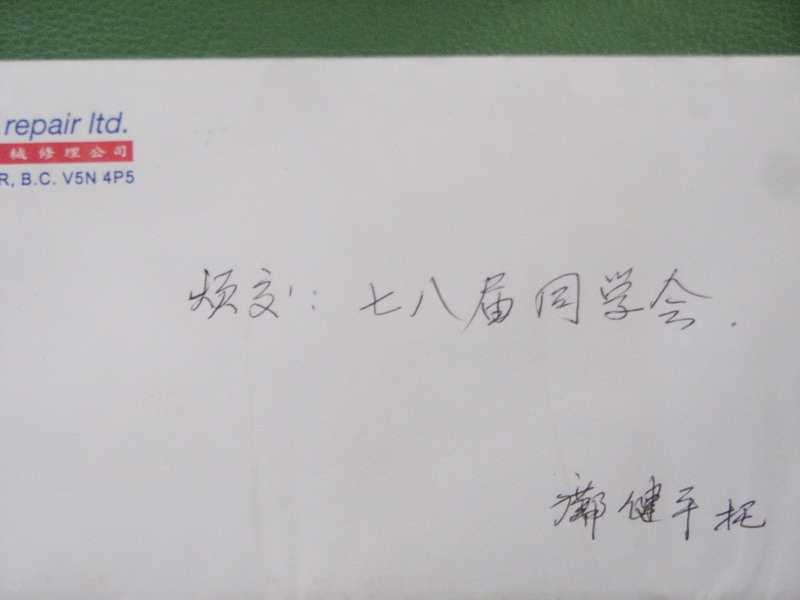 repair ltd.
械修理公司
R, B.C. V5N 4P5
烦交：七八届同学会.
鄺健平托